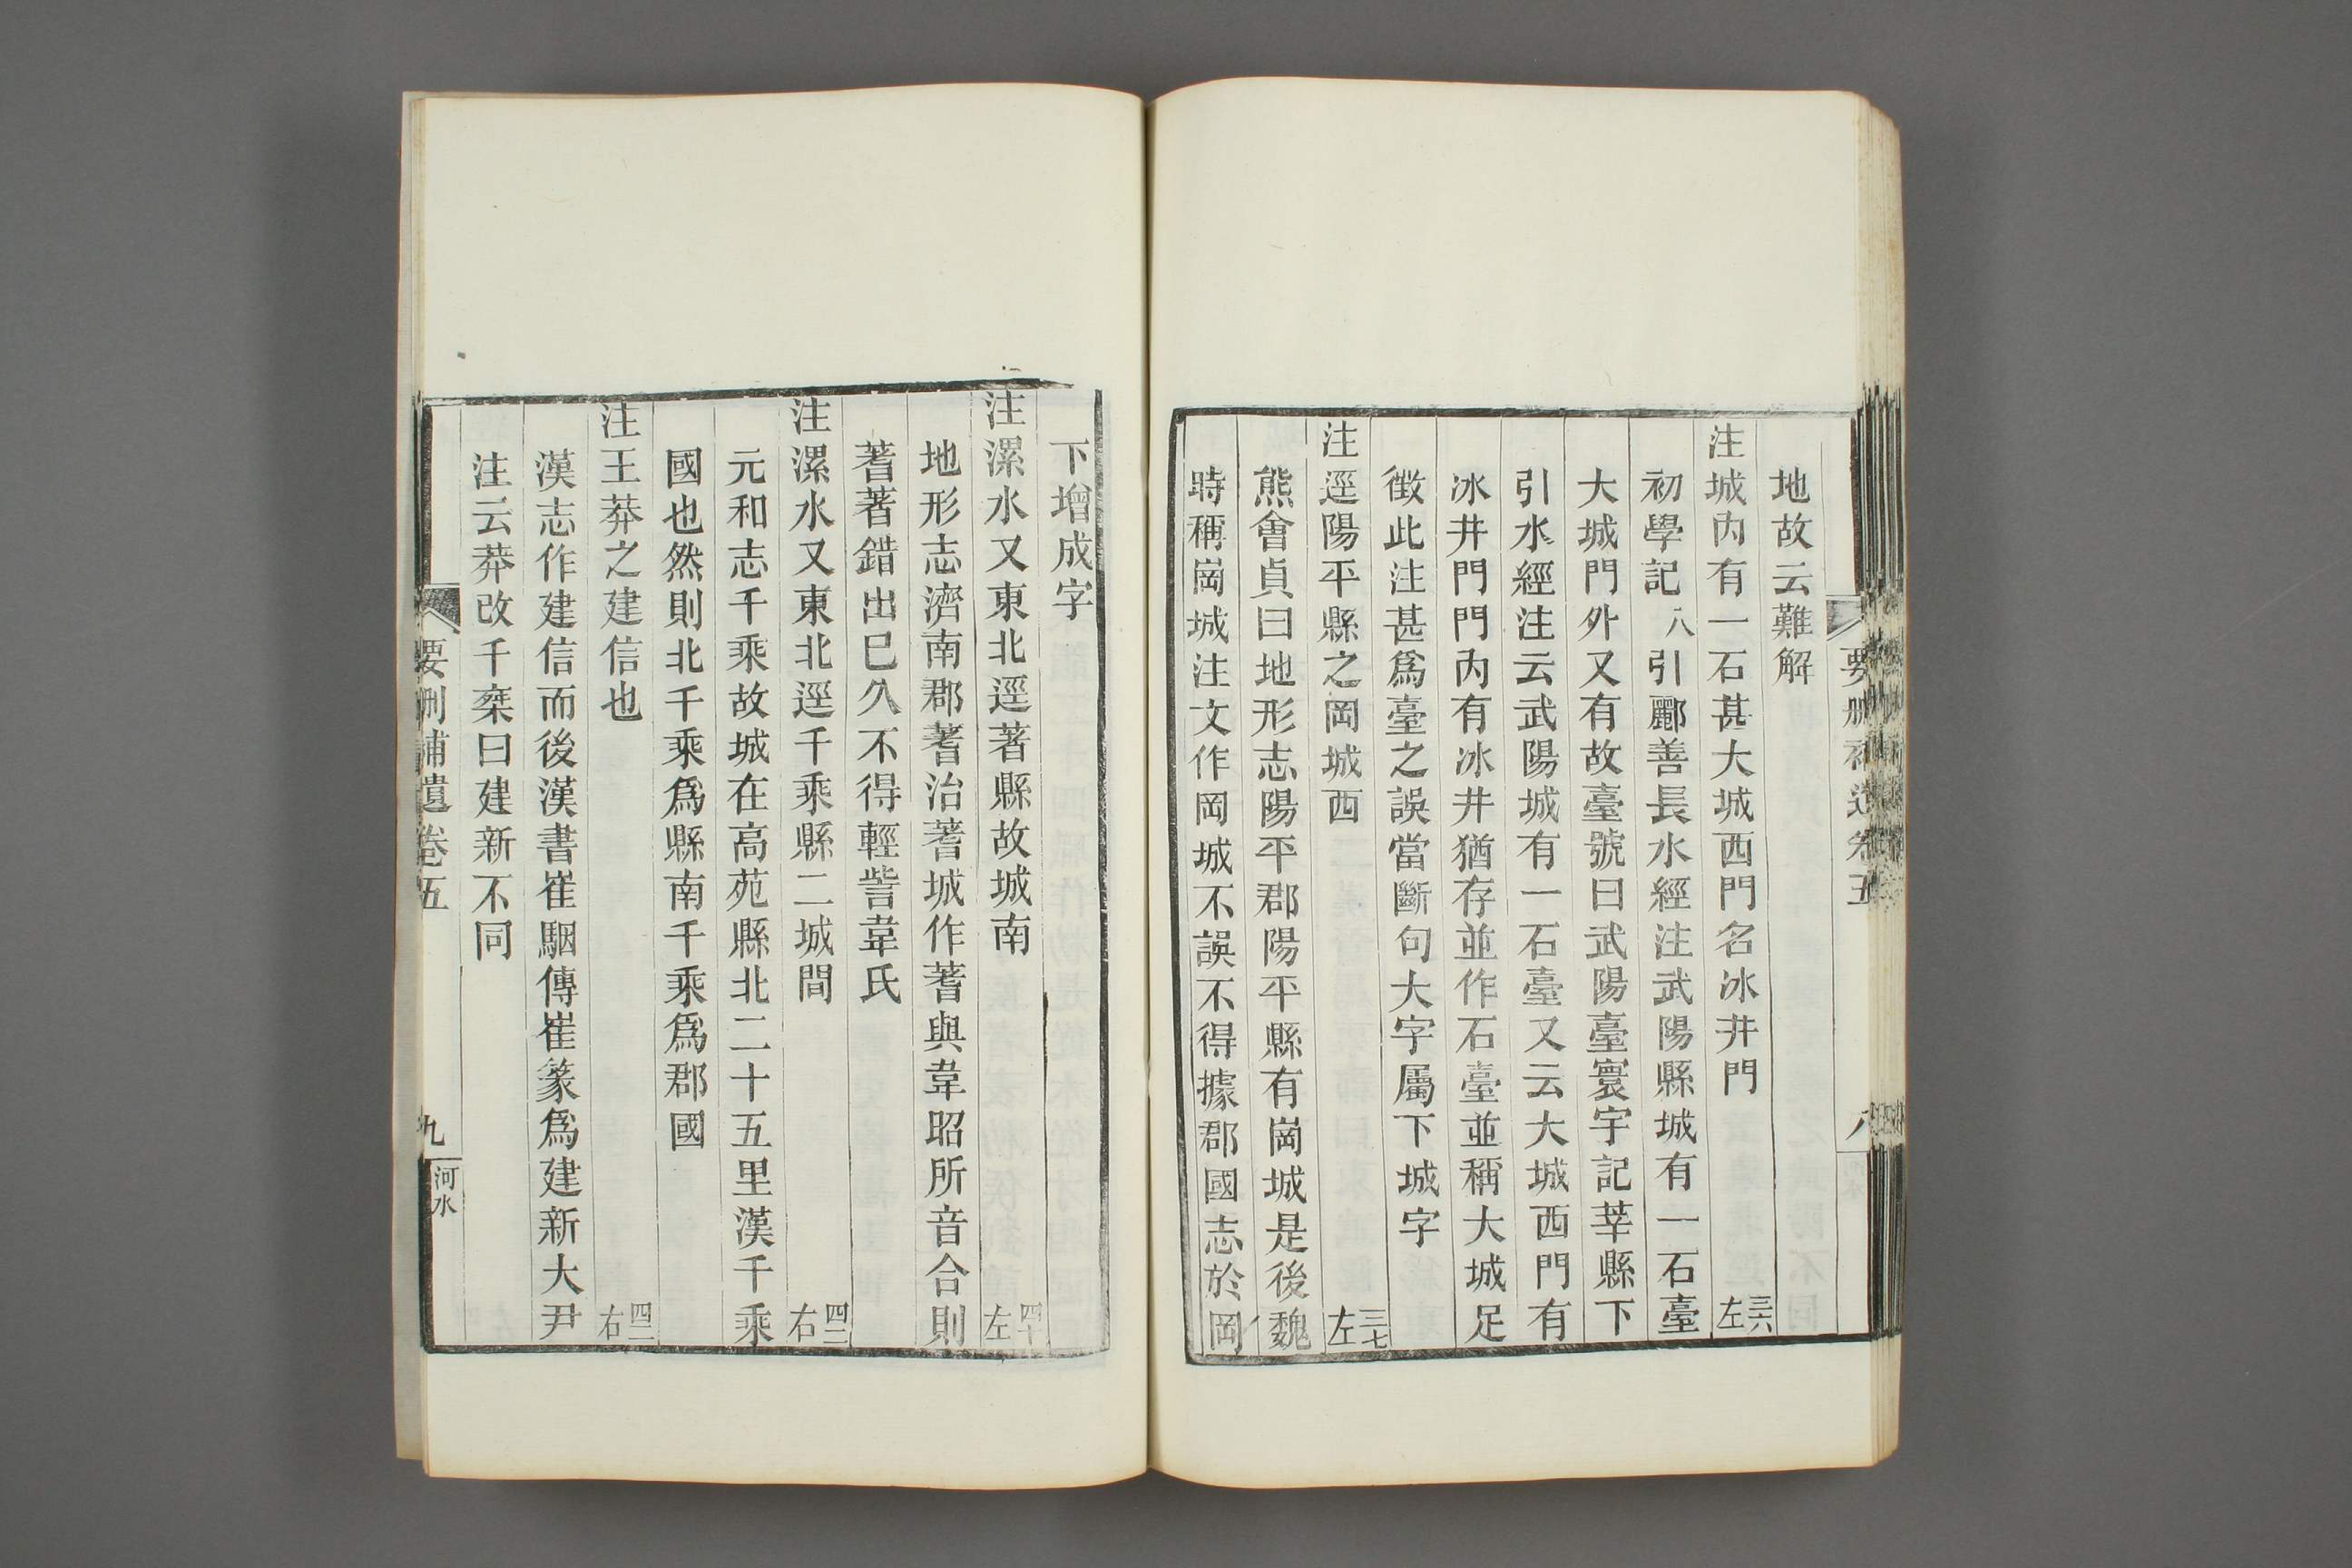 地故云難解
注城內有一石甚大城西門名冰井門三六左
初學記八引酈善長水經注武陽縣城有一石臺
大城門外又有故臺號曰武陽臺寰宇記莘縣下
引水經注云武陽城有一石臺又云大城西門有
冰井門門內有冰井猶存並作石臺並稱大城足
徵此注甚爲臺之誤當斷句大字屬下城字
注逕陽平縣之岡城西三七左
熊會貞曰地形志陽平郡陽平縣有崗城是後魏
時稱崗城注文作岡城不誤不得據郡國志於岡
要刪補遺卷五
八
下增成字
注漯水又東北逕著縣故城南四十左
地形志濟南郡蓍治蓍城作蓍與韋昭所音合則
蓍著錯出已久不得輕訾韋氏
注漯水又東北逕千乘縣二城間四二右
元和志千乘故城在高苑縣北二十五里漢千乘
國也然則北千乘爲縣南千乘爲郡國
注王莽之建信也四二右
漢志作建信而後漢書崔駰傳崔篆爲建新大尹
注云莽改千椉曰建新不同
要刪補遺卷五
九
河水